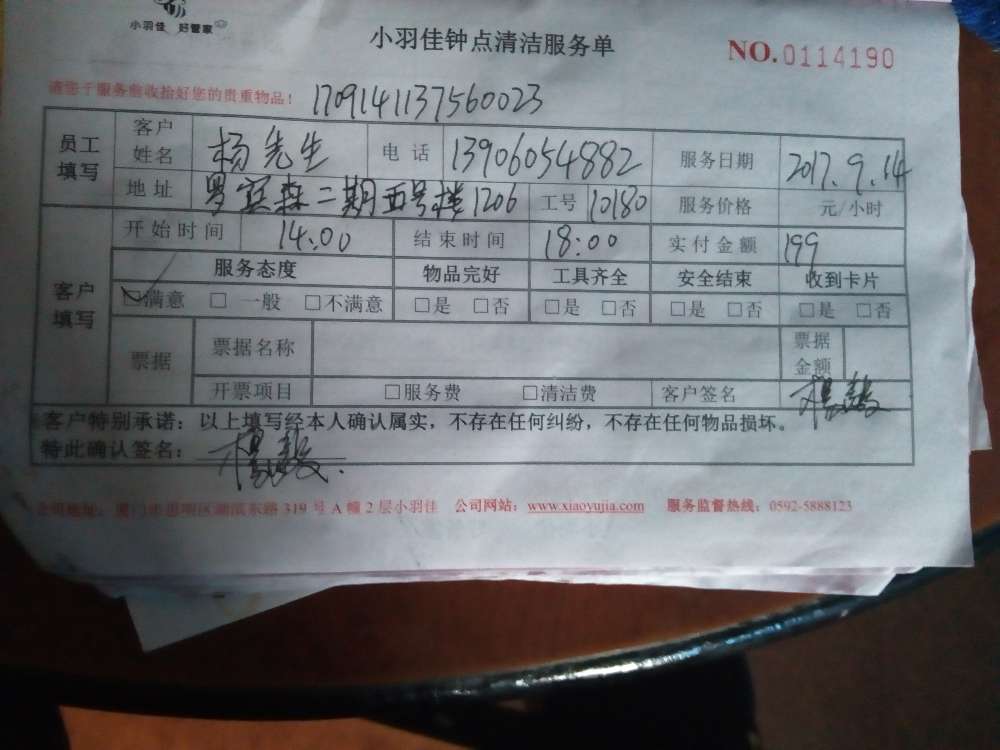 小羽佳 好管家
小羽佳钟点清洁服务单
NO.0114190
请您于服务前收拾好您的贵重物品！ 1709141137560023
员工填写 客户姓名 杨先生 电话 13906054882 服务日期 2017.9.14
地址 罗宾森二期五号楼1206 工号 10180 服务价格 元/小时
开始时间 14:00 结束时间 18:00 实付金额 199
客户填写 服务态度 物品完好 工具齐全 安全结束 收到卡片
☑满意 □一般 □不满意 □是 □否 □是 □否 □是 □否 □是 □否
票据 票据名称 票据金额
开票项目 □服务费 □清洁费 客户签名
客户特别承诺：以上填写经本人确认属实，不存在任何纠纷，不存在任何物品损坏。
特此确认签名：
公司地址：厦门市思明区湖滨东路319号A幢2层小羽佳 公司网站：www.xiaoyujia.com 服务监督热线：0592-5888123